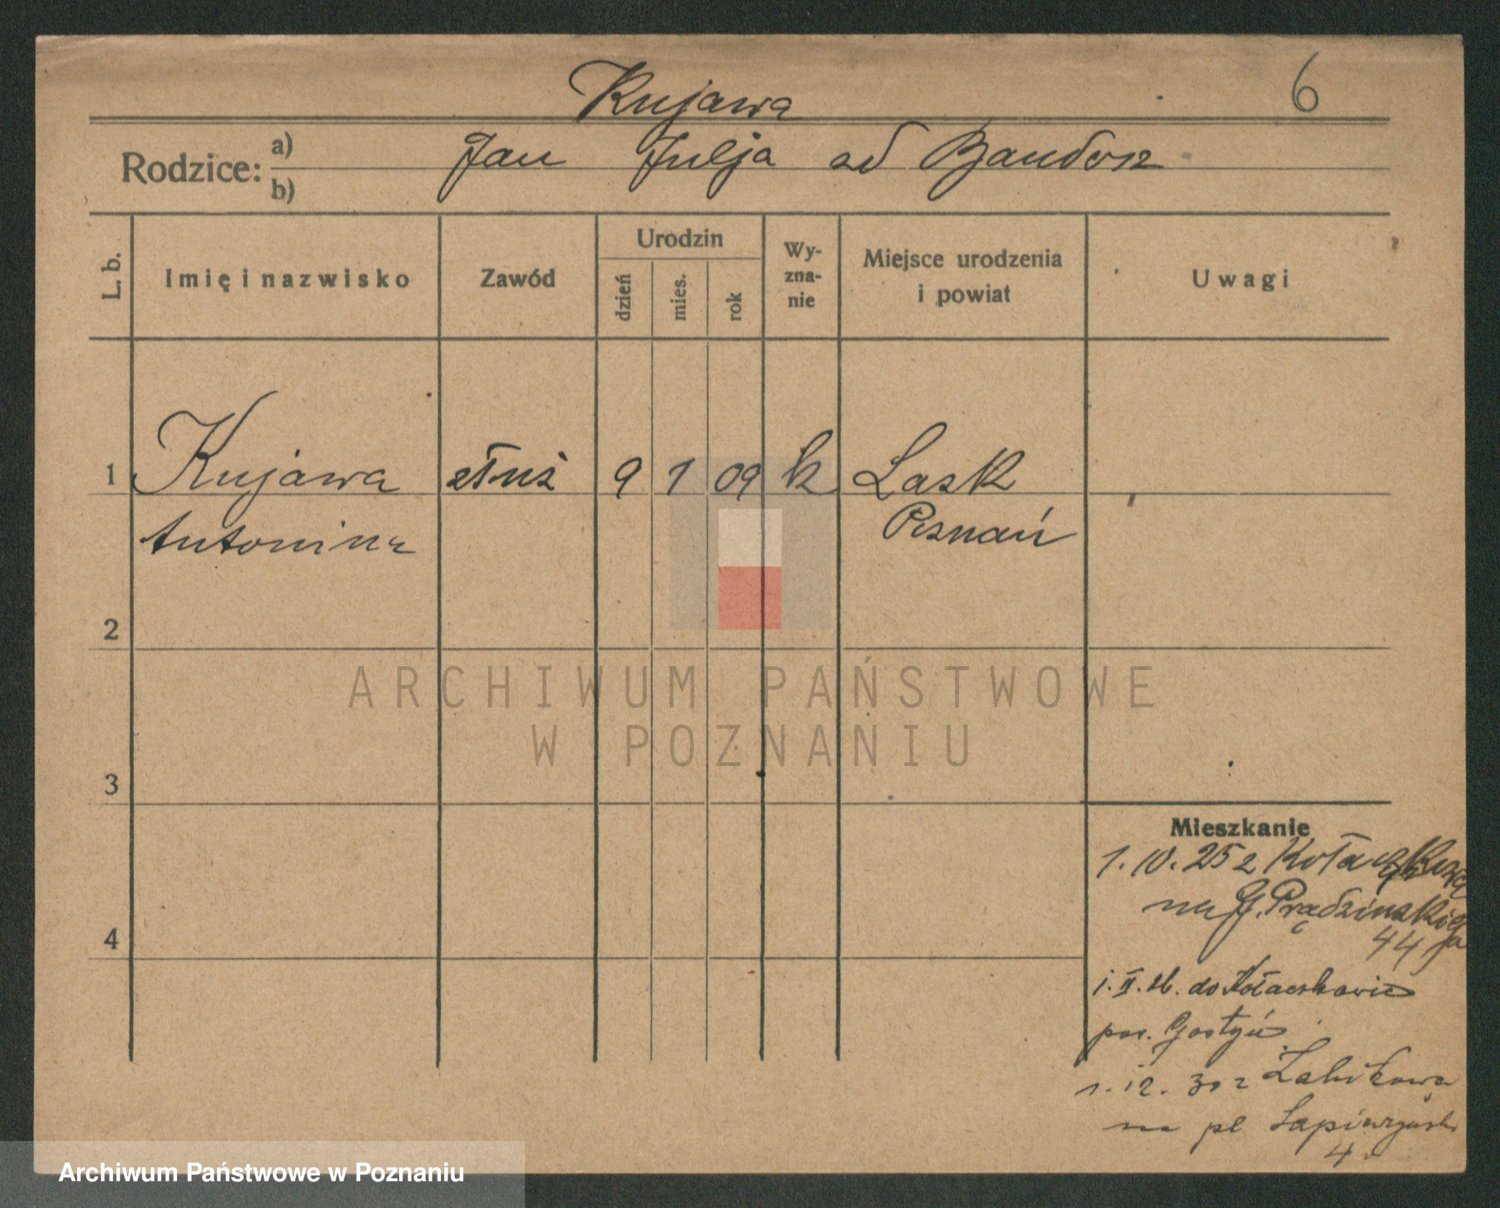 Kujawa 6
Rodzice: a) b) Jan Julja zd Bandosz
L. b. Imię i nazwisko Zawód Urodzin dzień mies. rok Wy-zna-nie Miejsce urodzenia i powiat Uwagi
1 Kujawa służ 9 1 09 k Lask
Antonina Poznań
2
ARCHIWUM PAŃSTWOWE
W POZNANIU
3
Mieszkanie
1. 10. 25 z
na G. Prądzińskiego
44
4
do Kołaczkowic
pow. Gostyń
1. 12. 30 z Żabikowa
na pl Sapieżyński
4
Archiwum Państwowe w Poznaniu